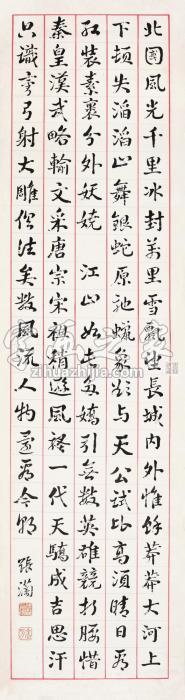 北国風光千里冰封万里雪飄望長城内外惟餘莽莽大河上
下頓失滔滔山舞銀蛇原馳蠟象欲与天公試比高須晴日看
紅裝素裹分外妖嬈 江山如此多嬌引無數英雄競折腰惜
秦皇漢武略輸文采唐宗宋祖稍遜風騷一代天驕成吉思汗
只識彎弓射大雕俱往矣数風流人物還看今朝 張瀾
字画之家
zihuazhijia.com